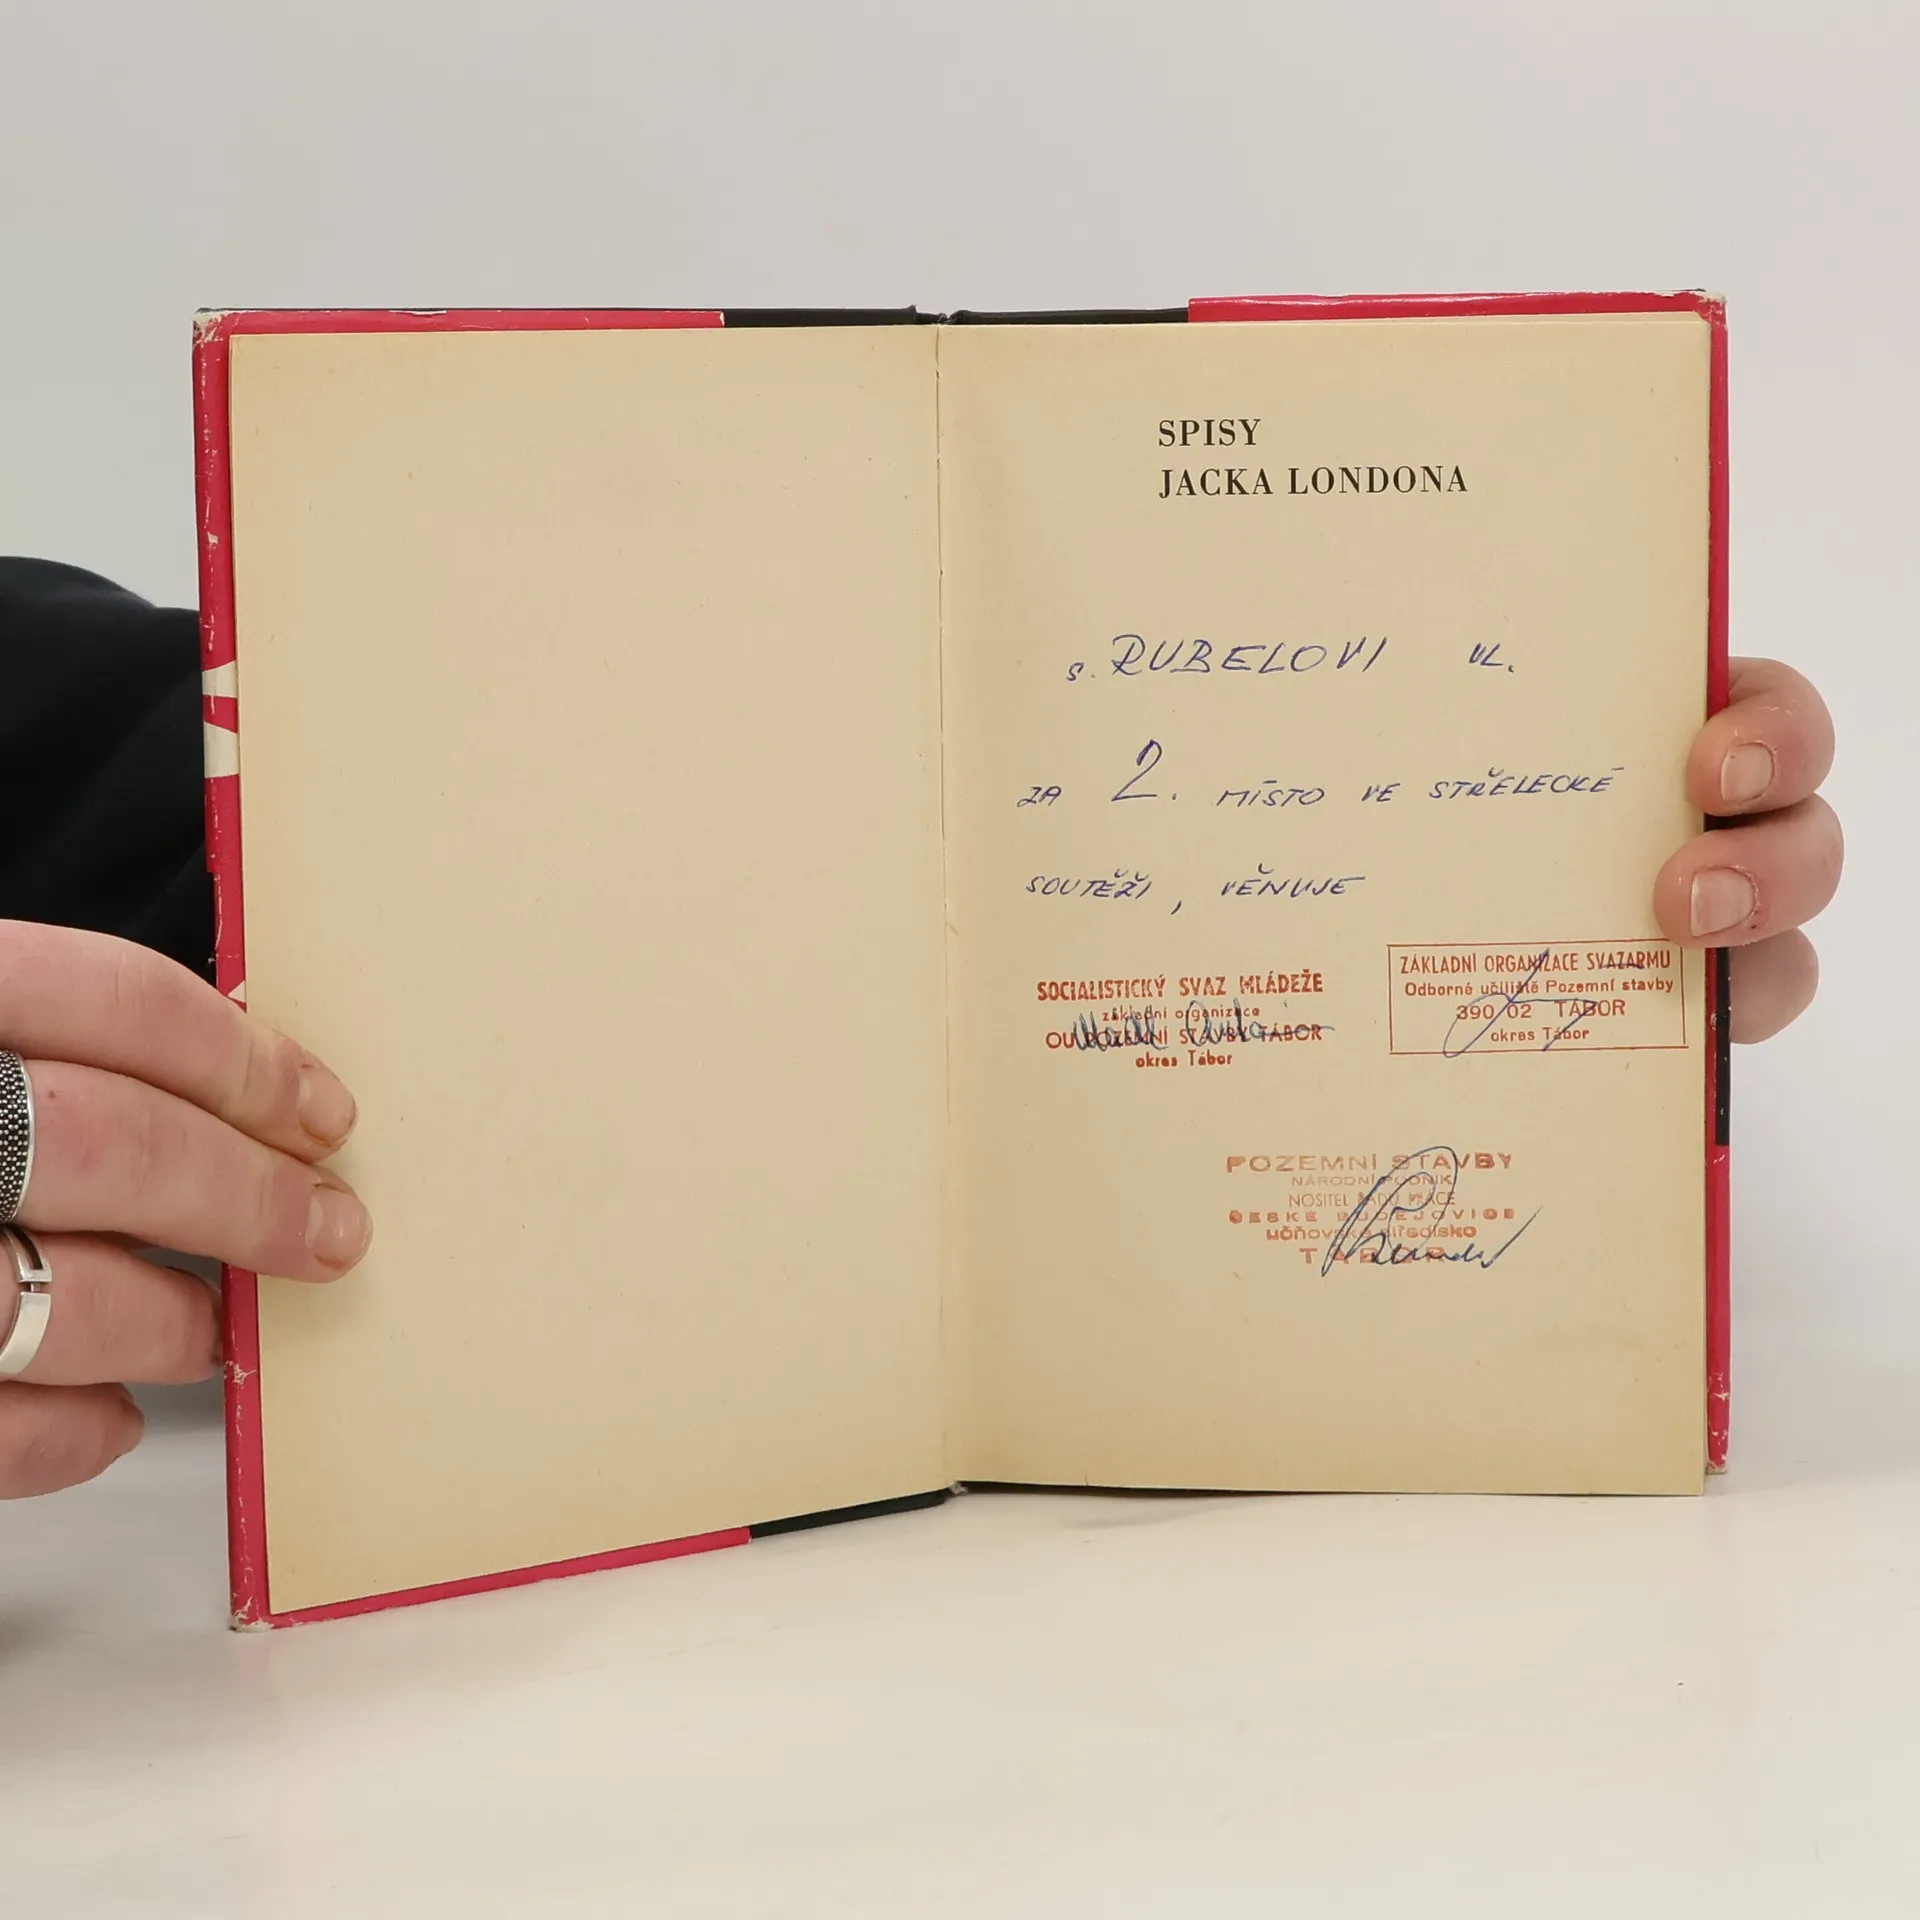 SPISY
JACKA LONDONA
s. RUBELOVI VL.
ZA 2. MÍSTO VE STŘELECKÉ
SOUTĚŽI, VĚNUJE
SOCIALISTICKÝ SVAZ MLÁDEŽE
základní organizace
OU POZEMNÍ STAVBY TÁBOR
okres Tábor
ZÁKLADNÍ ORGANIZACE SVAZARMU
Odborné učiliště Pozemní stavby
390 02 TÁBOR
okres Tábor
POZEMNÍ STAVBY
NÁRODNÍ PODNIK
NOSITEL ŘÁDU PRÁCE
ČESKÉ BUDĚJOVICE
učňovské středisko
TÁBOR